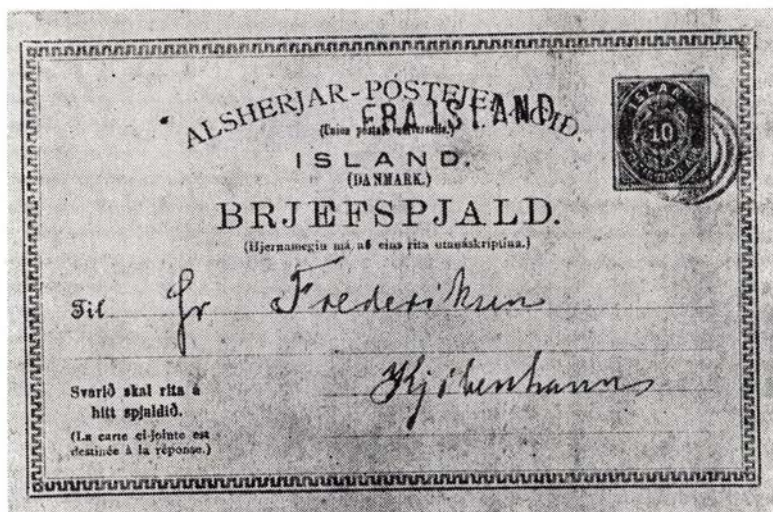 ALSHERJAR-PÓSTFJELAGID.
FRA ISLAND
(Union postale universelle.)
ISLAND
10
ISLAND.
(DANMARK.)
BRJEFSPJALD.
(Hjernamegin má að eins rita utanáskriptina.)
Til Hr Frederiksen
Kjöbenhavn
Svarið skal rita á
hitt spjaldið.
(La carte ci-jointe est
destinée à la réponse.)